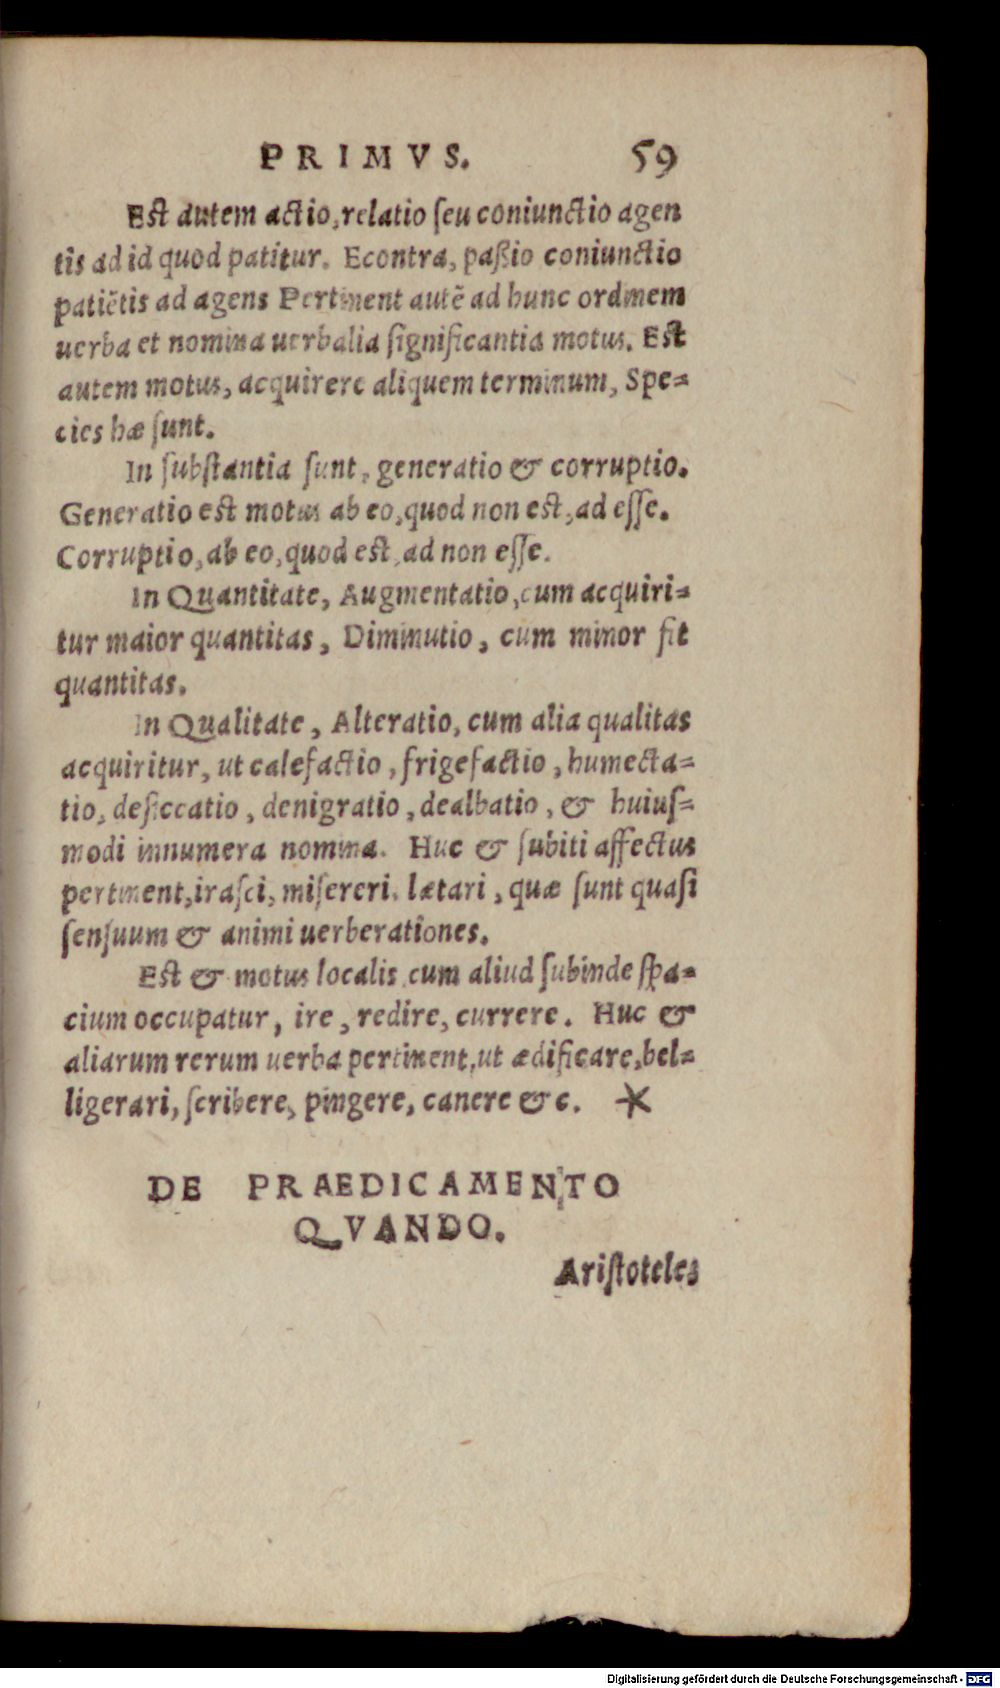 PRIMVS. 59
Est autem actio, relatio ſeu coniunctio agen
tis ad id quod patitur. Econtra, paßio coniunctio
patiẽtis ad agens Pertinent autẽ ad hunc ordinem
uerba et nomina uerbalia ſignificantia motus. Est
autem motus, acquirere aliquem terminum, Spe=
cies hæ ſunt.
In ſubſtantia ſunt, generatio & corruptio.
Generatio est motus ab eo, quod non est, ad eſſe.
Corruptio, ab eo, quod est, ad non eſſe.
In Quantitate, Augmentatio, cum acquiri=
tur maior quantitas, Diminutio, cum minor fit
quantitas.
In Qualitate, Alteratio, cum alia qualitas
acquiritur, ut calefactio, frigefactio, humecta=
tio, deſiccatio, denigratio, dealbatio, & huiuſ=
modi innumera nomina. Huc & ſubiti affectus
pertinent, iraſci, miſereri. lætari, quæ ſunt quaſi
ſenſuum & animi uerberationes.
Est & motus localis cum aliud ſubinde ſpa=
cium occupatur, ire, redire, currere. Huc &
aliarum rerum uerba pertinent, ut ædificare, bel=
ligerari, ſcribere, pingere, canere &c. *
DE PRAEDICAMENTO
QVANDO.
Ariſtoteles
Digitalisierung gefördert durch die Deutsche Forschungsgemeinschaft - DFG